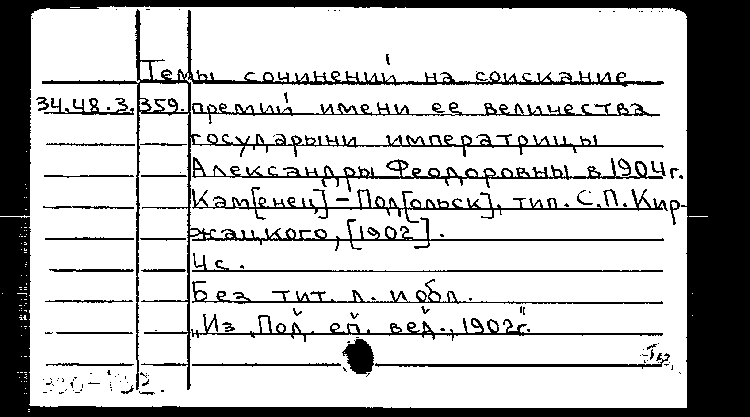 Темы сочинений на соискание
34.48.3.359. премий имени ее величества
государыни императрицы
Александры Феодоровны в 1904г.
Кам[енец]-Под[ольск], тип. С.П.Кир-
жацкого, [1902].
4с.
Без тит. л. и обл.
„Из „Под. еп. вед.", 1902г."